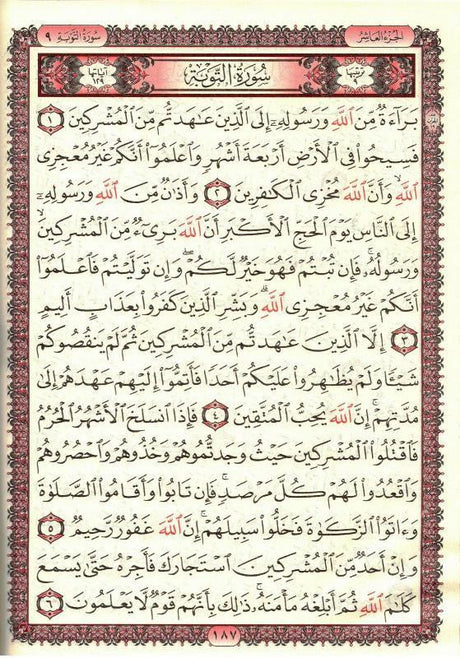 الجزء العاشر
سورة التوبة ٩
ترتيبها ٩
سُورَةُ التَّوْبَةِ
آياتها ١٢٩
بَرَآءَةٌ مِّنَ ٱللَّهِ وَرَسُولِهِۦٓ إِلَى ٱلَّذِينَ عَٰهَدتُّم مِّنَ ٱلْمُشْرِكِينَ ١
فَسِيحُوا۟ فِى ٱلْأَرْضِ أَرْبَعَةَ أَشْهُرٍ وَٱعْلَمُوٓا۟ أَنَّكُمْ غَيْرُ مُعْجِزِى
ٱللَّهِ ۙ وَأَنَّ ٱللَّهَ مُخْزِى ٱلْكَٰفِرِينَ ٢ وَأَذَٰنٌ مِّنَ ٱللَّهِ وَرَسُولِهِۦٓ
إِلَى ٱلنَّاسِ يَوْمَ ٱلْحَجِّ ٱلْأَكْبَرِ أَنَّ ٱللَّهَ بَرِىٓءٌ مِّنَ ٱلْمُشْرِكِينَ ۙ
وَرَسُولُهُۥ ۚ فَإِن تُبْتُمْ فَهُوَ خَيْرٌ لَّكُمْ ۖ وَإِن تَوَلَّيْتُمْ فَٱعْلَمُوٓا۟
أَنَّكُمْ غَيْرُ مُعْجِزِى ٱللَّهِ ۗ وَبَشِّرِ ٱلَّذِينَ كَفَرُوا۟ بِعَذَابٍ أَلِيمٍ
٣ إِلَّا ٱلَّذِينَ عَٰهَدتُّم مِّنَ ٱلْمُشْرِكِينَ ثُمَّ لَمْ يَنقُصُوكُمْ
شَيْـًٔا وَلَمْ يُظَٰهِرُوا۟ عَلَيْكُمْ أَحَدًا فَأَتِمُّوٓا۟ إِلَيْهِمْ عَهْدَهُمْ إِلَىٰ
مُدَّتِهِمْ ۚ إِنَّ ٱللَّهَ يُحِبُّ ٱلْمُتَّقِينَ ٤ فَإِذَا ٱنسَلَخَ ٱلْأَشْهُرُ ٱلْحُرُمُ
فَٱقْتُلُوا۟ ٱلْمُشْرِكِينَ حَيْثُ وَجَدتُّمُوهُمْ وَخُذُوهُمْ وَٱحْصُرُوهُمْ
وَٱقْعُدُوا۟ لَهُمْ كُلَّ مَرْصَدٍ ۚ فَإِن تَابُوا۟ وَأَقَامُوا۟ ٱلصَّلَوٰةَ
وَءَاتَوُا۟ ٱلزَّكَوٰةَ فَخَلُّوا۟ سَبِيلَهُمْ ۚ إِنَّ ٱللَّهَ غَفُورٌ رَّحِيمٌ ٥
وَإِنْ أَحَدٌ مِّنَ ٱلْمُشْرِكِينَ ٱسْتَجَارَكَ فَأَجِرْهُ حَتَّىٰ يَسْمَعَ
كَلَٰمَ ٱللَّهِ ثُمَّ أَبْلِغْهُ مَأْمَنَهُۥ ۚ ذَٰلِكَ بِأَنَّهُمْ قَوْمٌ لَّا يَعْلَمُونَ ٦
١٨٧